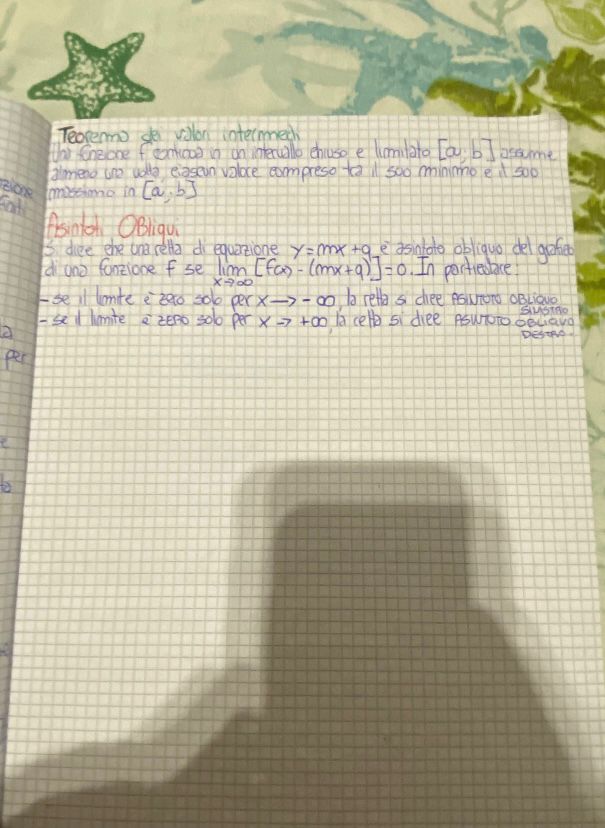 Teorema dei valori intermedi
Una funzione f continua in un intervallo chiuso e limitato [a, b] assume
almeno una volta, ciascun valore compreso tra il suo minimo e il suo
massimo in [a, b]
Asintoti Obliqui
Si dice che una retta di equazione y=mx+q è asintoto obliquo del grafico
di una funzione f se lim x→∞ [f(x) - (mx+q)]=0. In particolare:
- se il limite è zero solo per x → -∞, la retta si dice ASINTOTO OBLIQUO
SINISTRO
- se il limite è ZERO solo per x → +∞, la retta si dice ASINTOTO OBLIQUO
DESTRO.
zione
per